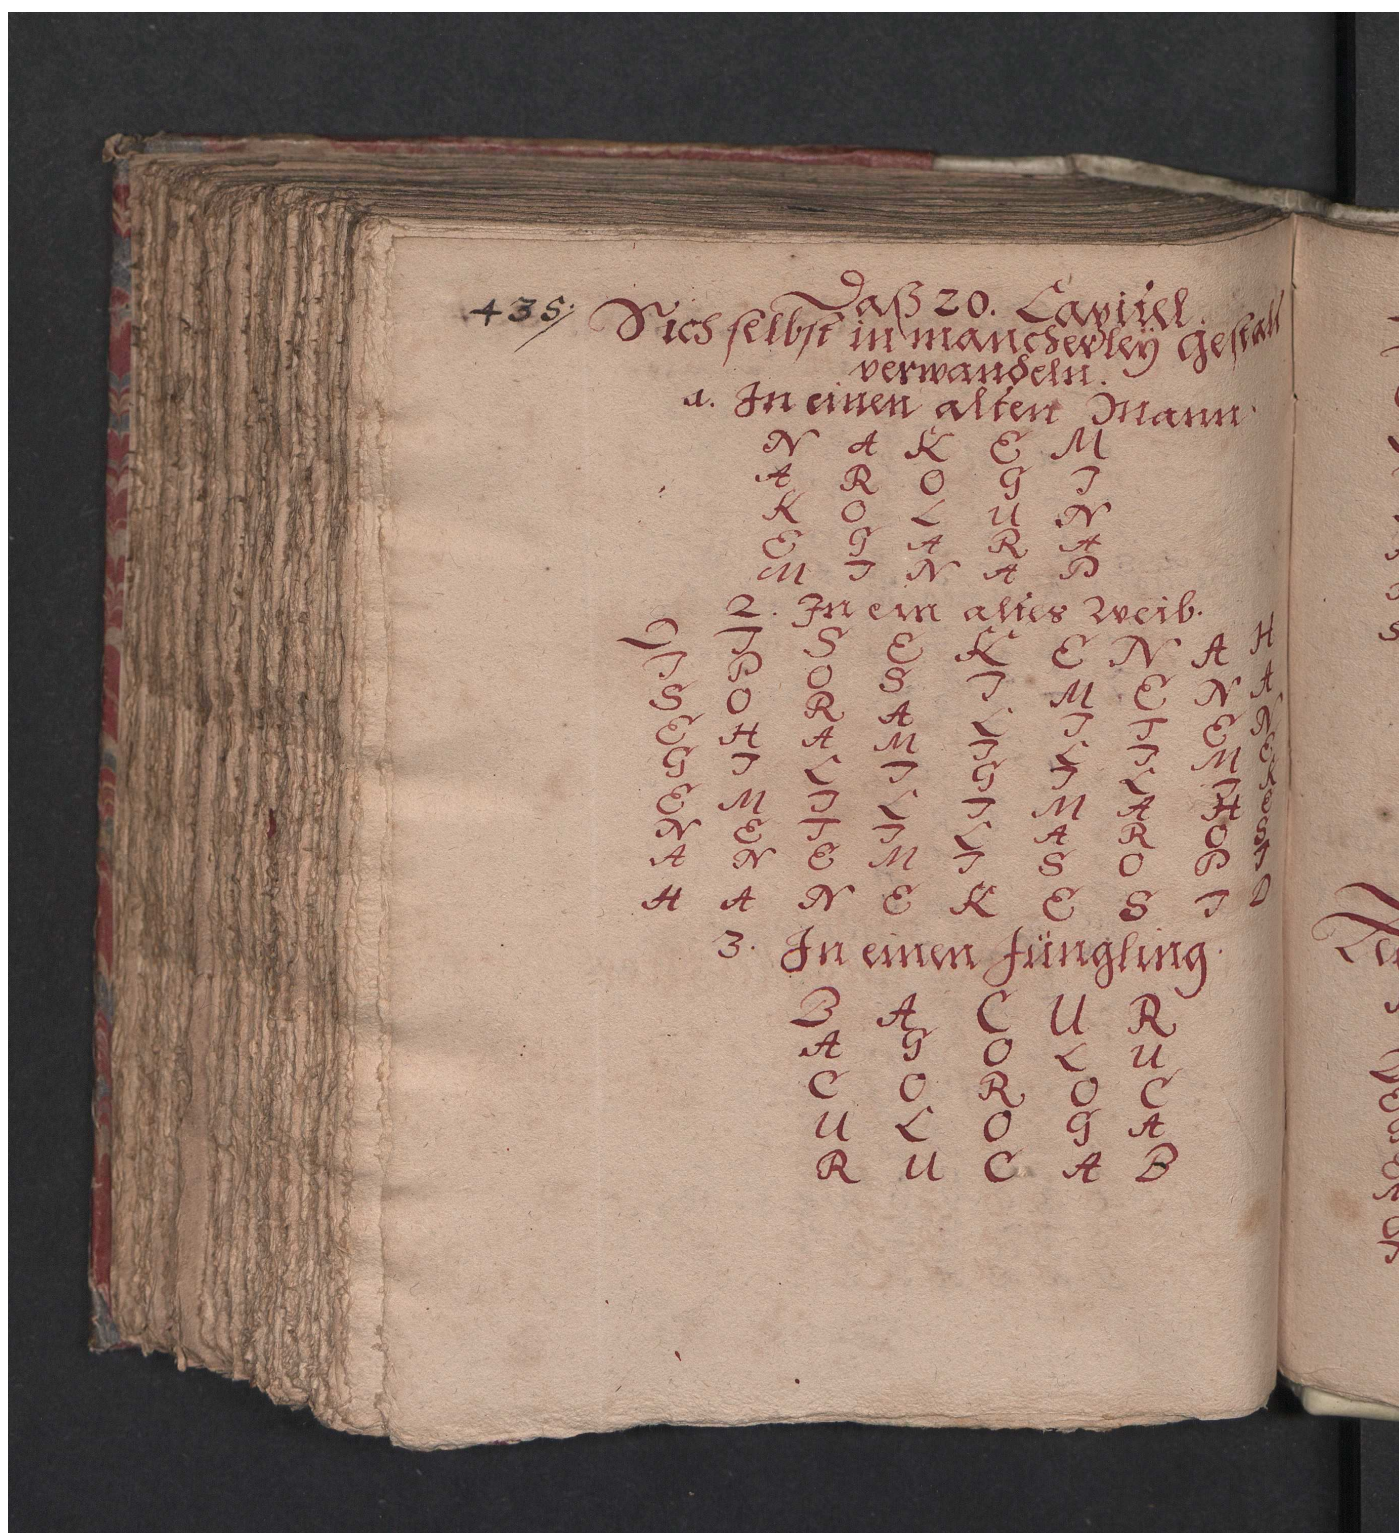 435.
Daß 20. Capitel.
Sich selbst in mancherleÿ Gestalt
verwandeln.
a. In einen alten Mann
N A K E M
A R O G I
K O L U N
E G A R A
M I N A P
2. In ein altes Weib.
D I S E K E N A H
I P O S I M E N A
S O R A L I T E N
E H A M I L I M E
G I L I G I L I K
E M I L I M A H E
N E T I L A R O S
A N E M I S O P I
H A N E K E S I D
3. In einen Jüngling.
B A C U R
A G O L U
C O R O C
U L O G A
R U C A B